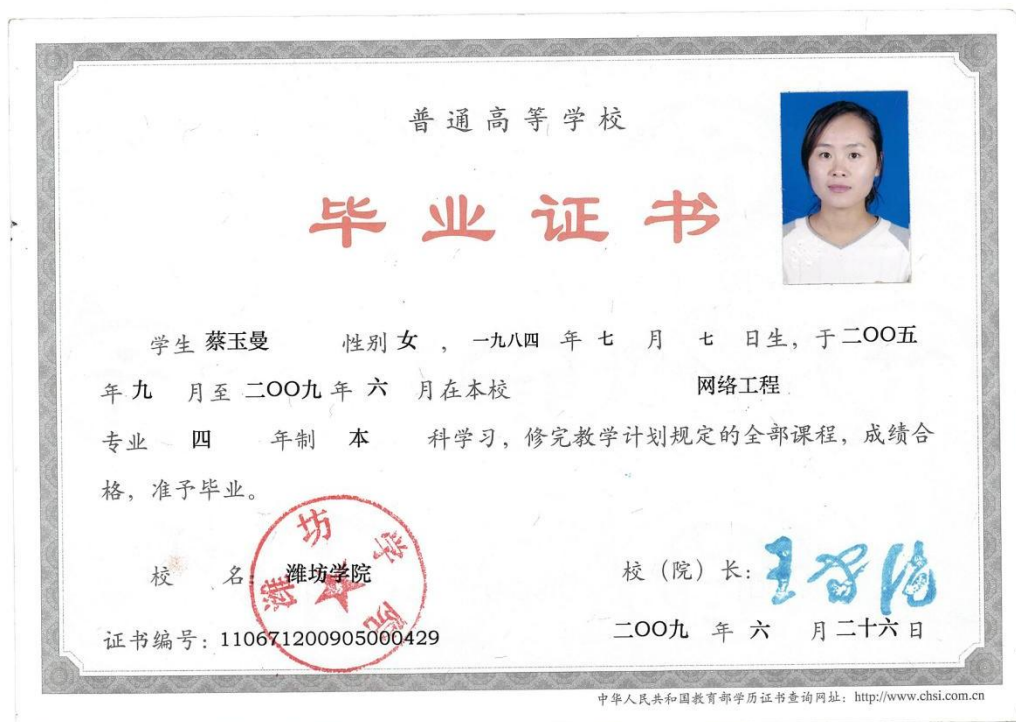 普通高等学校
毕业证书
学生 蔡玉曼 性别 女 ，一九八四 年 七 月 七 日生，于 二〇〇五
年 九 月至 二〇〇九 年 六 月在本校 网络工程
专业 四 年制 本 科学习，修完教学计划规定的全部课程，成绩合
格，准予毕业。
潍坊学院
校 名：潍坊学院 校（院）长：
证书编号：110671200905000429 二〇〇九 年 六 月 二十六 日
中华人民共和国教育部学历证书查询网址：http://www.chsi.com.cn